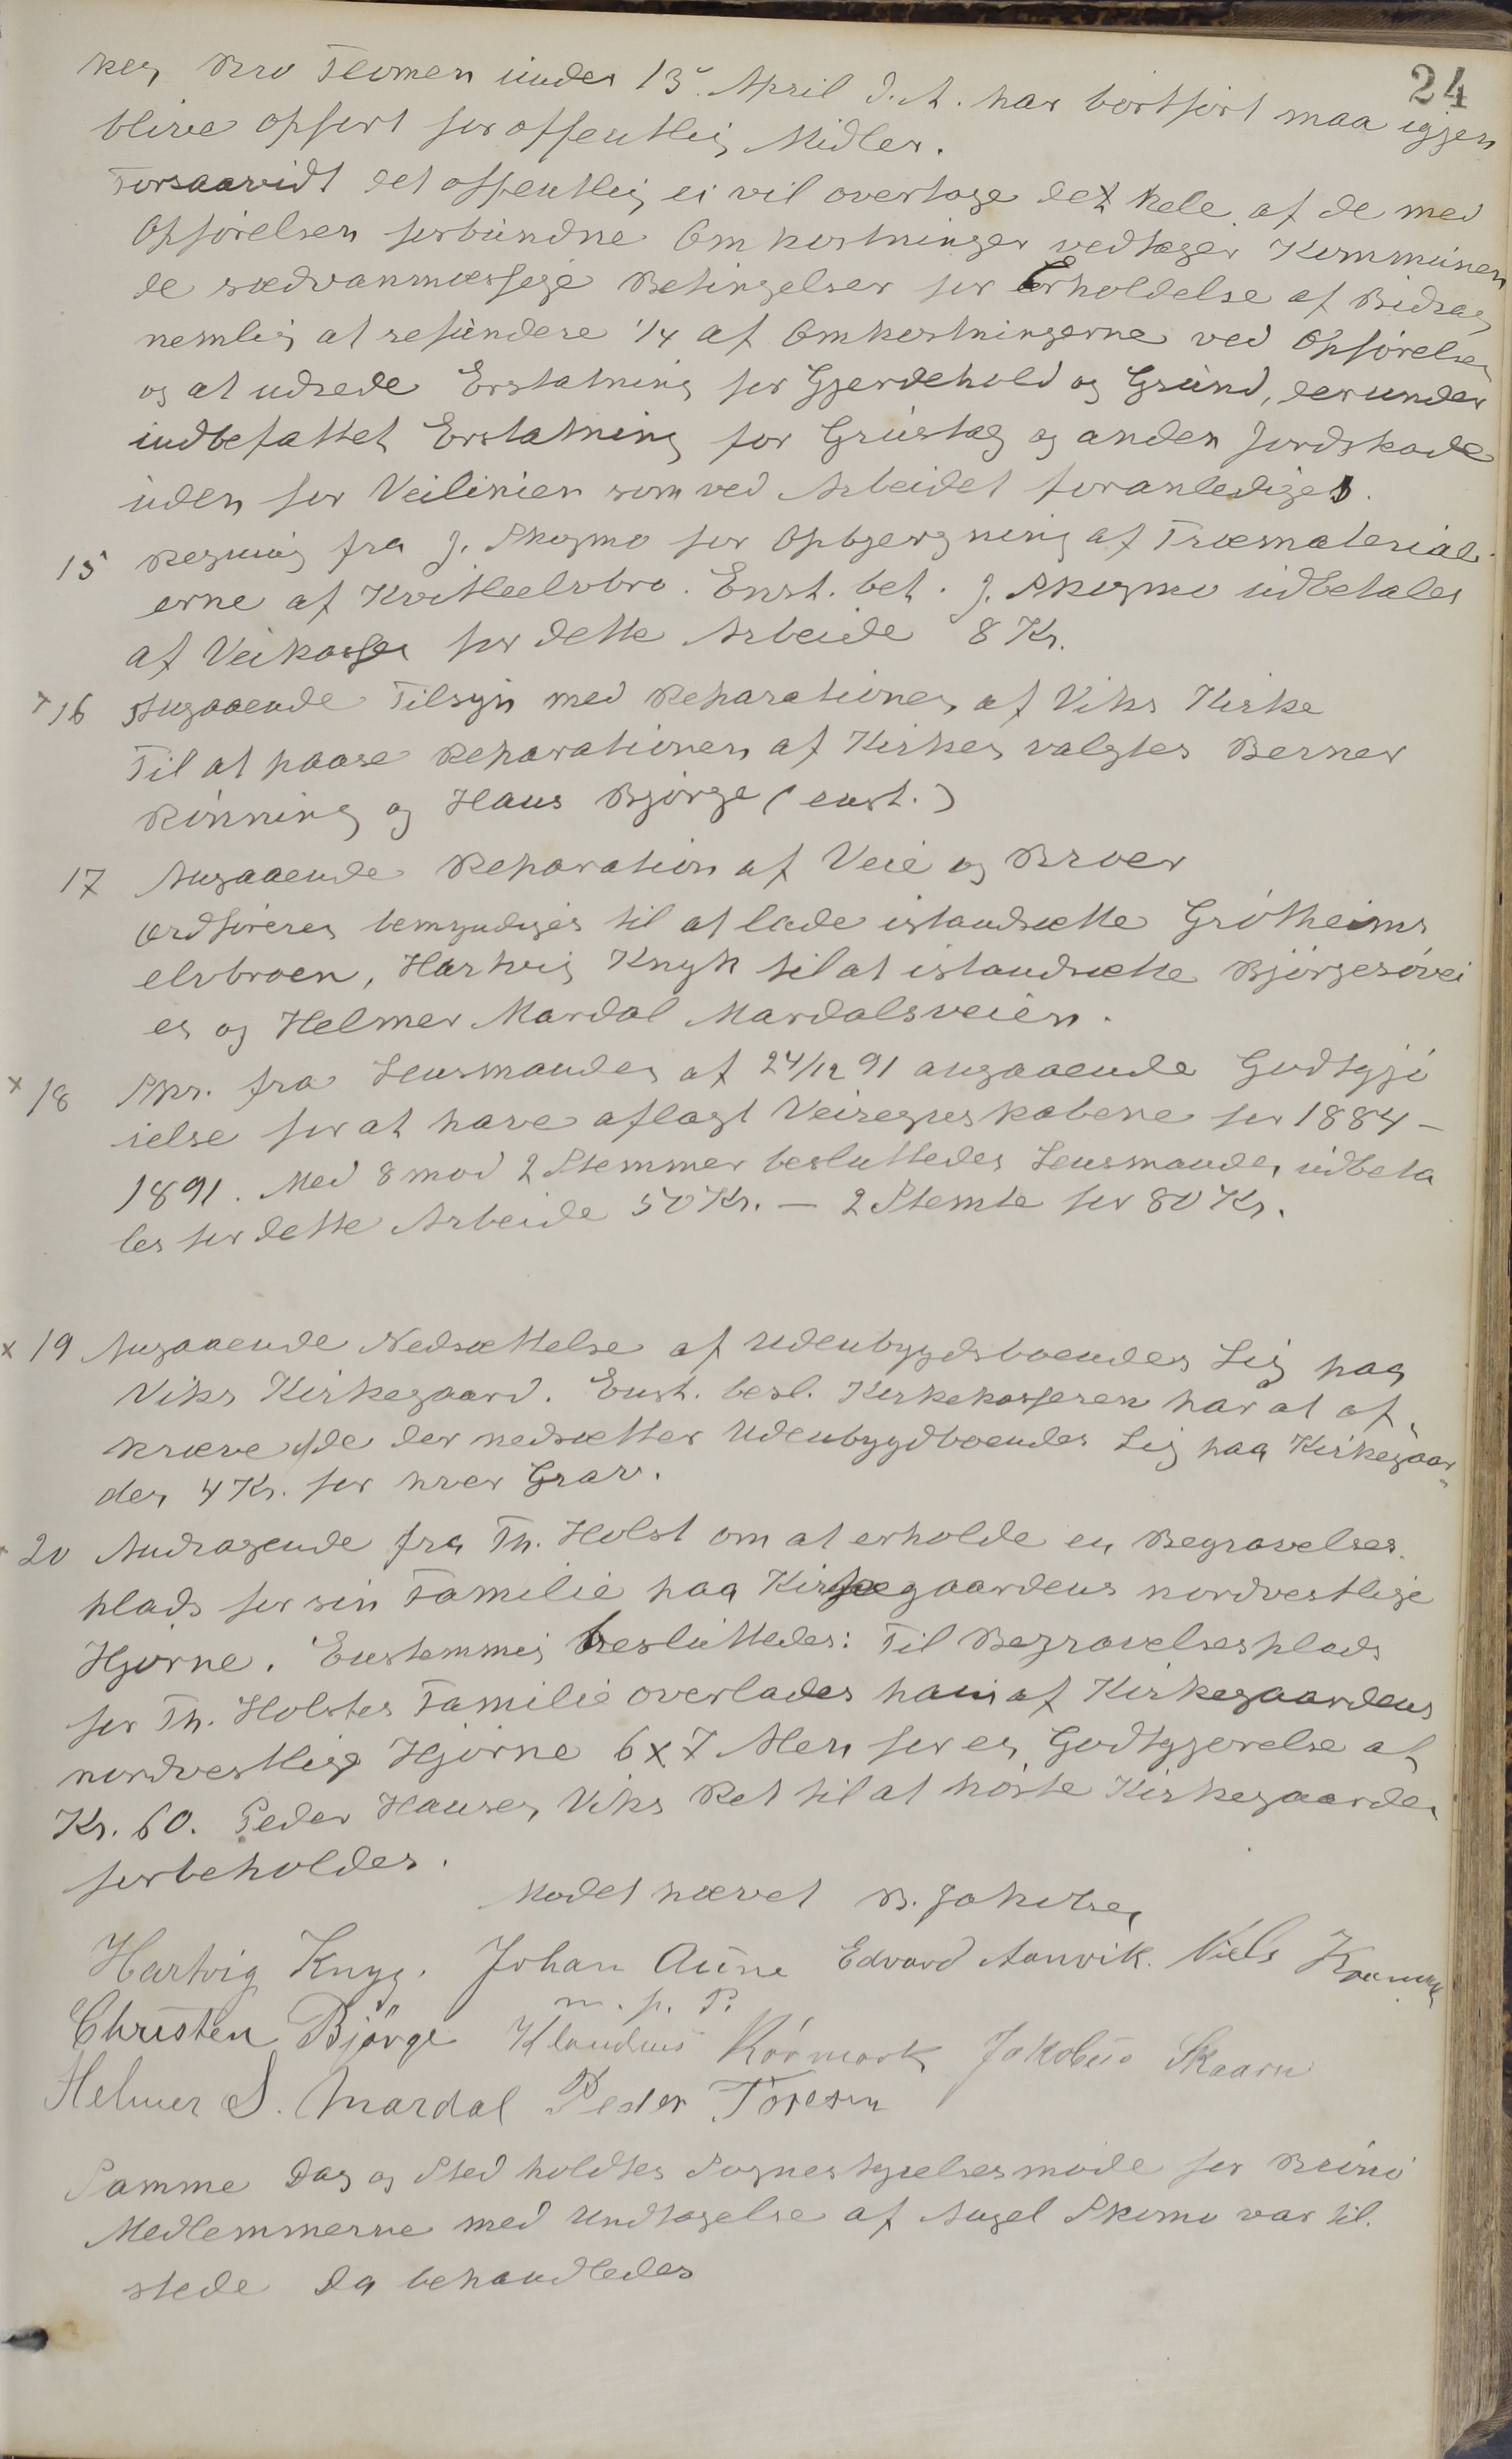 24
ken Bro Flomen under 13. April d. A. har bortført maa igjen
blive opført for offentlig Midler.
Forsaavidt det offentlig ei vil overtage det hele af de med
Opførelsen forbundne Omkostninger vedtager Kommunen
de sædvanmæssige Betingelser for Erholdelse af Bidrag
nemlig at refundere 1/4 af Omkostningerne ved Opførelsen
og at udrede Erstatning for Gjerdehold og Grund, derunder
indbefattet Erstatning for Grustag og anden Jordskade
uden for Veilinien som ved Arbeidet foranlediges.
15 Regning fra J. Skogmo for Opbjergning af Træmateriale
erne af Kvitleelvbro. Enst. bet. J. Skogmo udbetales
af Veikassen for dette Arbeide 8 Kr.
x 16 Angaaende Tilsyn med Reparationen af Viks Kirke
Til at paase Reparationen af Kirken valgtes Berner
Rönning og Hans Bjørge (enst.)
17 Angaaende Reparation af Veie og Broer
Ordføreren bemyndiges til at lade istandsætte Grótheims
elvbroen, Hartvig Knyk til at istandsætte Bjørgesövei
en og Helmer Mardal Mardalsveien.
x 18 Skr. fra Lensmanden af 24/12 91 angaaende Godtgjö
relse for at have aflagt Veiregnskabene for 1884 -
1891. Med 8 mod 2 Stemmer besluttedes Lensmanden udbeta
les for dette Arbeide 50 Kr. — 2 Stemte for 80 Kr.
x 19 Angaaende Nedsættelse af Udenbygdsboendes Lig paa
Viks Kirkegaard. Enst. besl. Kirkekasseren har at af-
kræve de der nedsætter Udenbygdboendes Lig paa Kirkegaar-
den 4 Kr. for hver Grav.
x 20 Andragende fra Th. Holst om at erholde en Begravelses-
plads for sin Familie paa Kirkegaardens nordvestlige
Hjørne. Enstemmig besluttedes: Til Begravelsesplads
for Th. Holstes Familie overlades ham af Kirkegaardens
nordvestlige Hjørne 6 x 7 Alen for en Godtgjørelse af
Kr. 60. Peder Hansen Viks Ret til at höste Kirkegaarden
forbeholdes.
Mødet hævet B. Jakobsen
Hartvig Knyg. Johan Aune Edvard Aanvik. Niels
m. p. P.
Christen Bjørge Klaudius Rörmark Jakobus Skaarn
Helmer S. Mardal Peder Toresen
Samme Dag og Sted holdtes Sognestyrelsesmøde for Brönö
Medlemmerne med Undtagelse af Angel Skomo var til.
stede Da behandledes